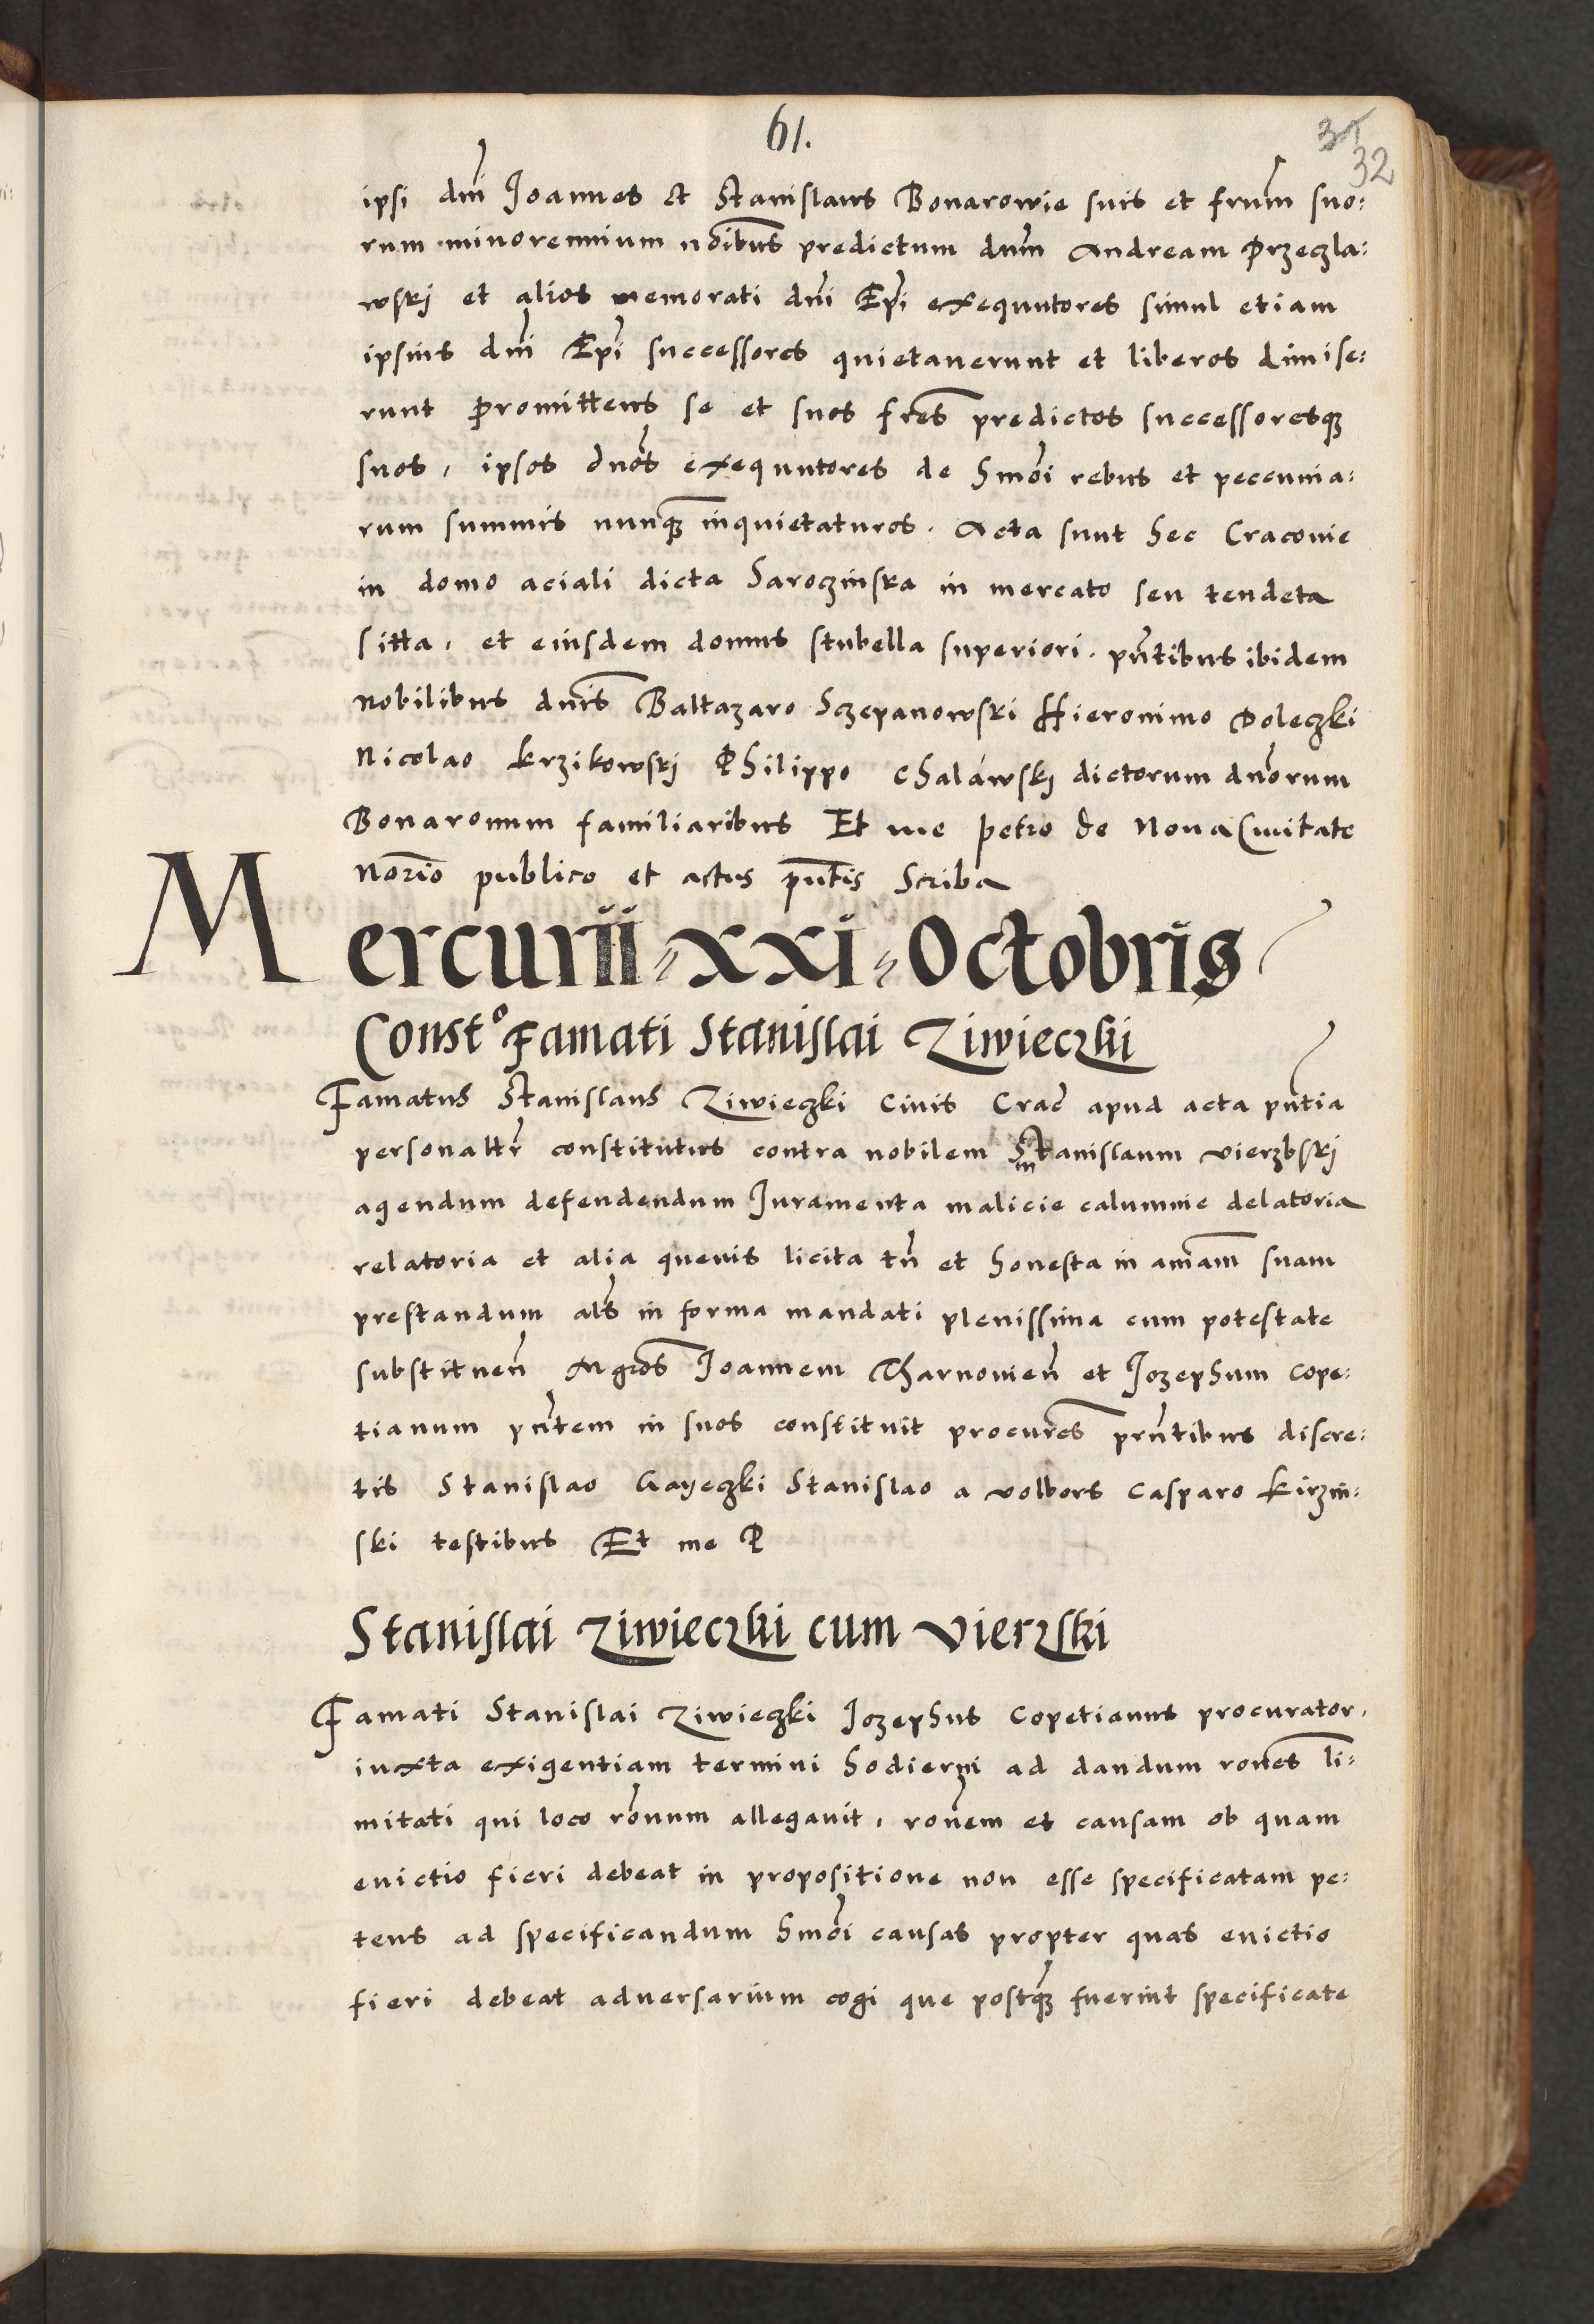 61.
31
32
ipsi dni Joannes et Stanislaus Bonarowie suis et frum suo:
rum minorennium noibus predictum dnm Andream Przeczla:
wskj et alios memorati dni Epi exequutores simul etiam
ipsius dni Epi successores quietauerunt et liberos dimise:
runt Promittens se et suos fres predictos successoresqz
suos, ipsos dnos exequutores de hmoi rebus et peccunia:
rum summis nunqz inquietaturos. Acta sunt hec Cracouie
in domo aciali dicta Saroczinska in mercato seu tendeta
sitta, et eiusdem domus stubella superiori. pntibus ibidem
nobilibus dnis Baltazaro Sczepanowski Hieronimo Poleczki
Nicolao Krzikowskj Philippo Chalawskj dictorum dnorum
Bonaronum familiaribus Et me Petro de Noua Ciuitate
Norio publico et actus pntis Scriba
Mercurii xxi Octobris
Const° Famati Stanislai Ziwieczki
Famatus Stanislaus Ziwieczki Ciuis Crac apud acta pntia
personaltr constitutus contra nobilem Stanislaum Vierzbskj
in
agendum defendendum Juramenta malicie calumnie delatoria
relatoria et alia queuis licita tn et honesta in aniam suam
prestandum als in forma mandati plenissima cum potestate
substituen Mgros Joannem Tharnouien et Jozephum Cope:
tianum pntem in suos constituit procures prntibus discre:
tis Stanislao Gayeczki Stanislao a Volbors Casparo Kirzin:
ski testibus Et me P
Stanislai Ziwieczki cum Vierzski
Famati Stanislai Ziwieczki Jozephus Copetianus procurator,
iuxta exigentiam termini hodierni ad dandum rones li:
mitati qui loco ronum allegauit, ronem et causam ob quam
euictio fieri debeat in propositione non esse specificatam pe:
tens ad specificandum hmoi causas propter quas euictio
fieri debeat aduersarium cogi que postqz fuerint specificate